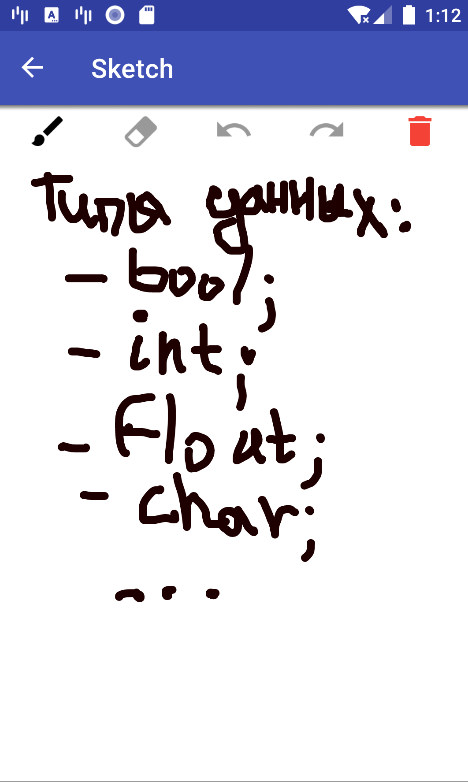 1:12
Sketch
Типы данных:
- bool;
- int;
- Float;
- char;
...